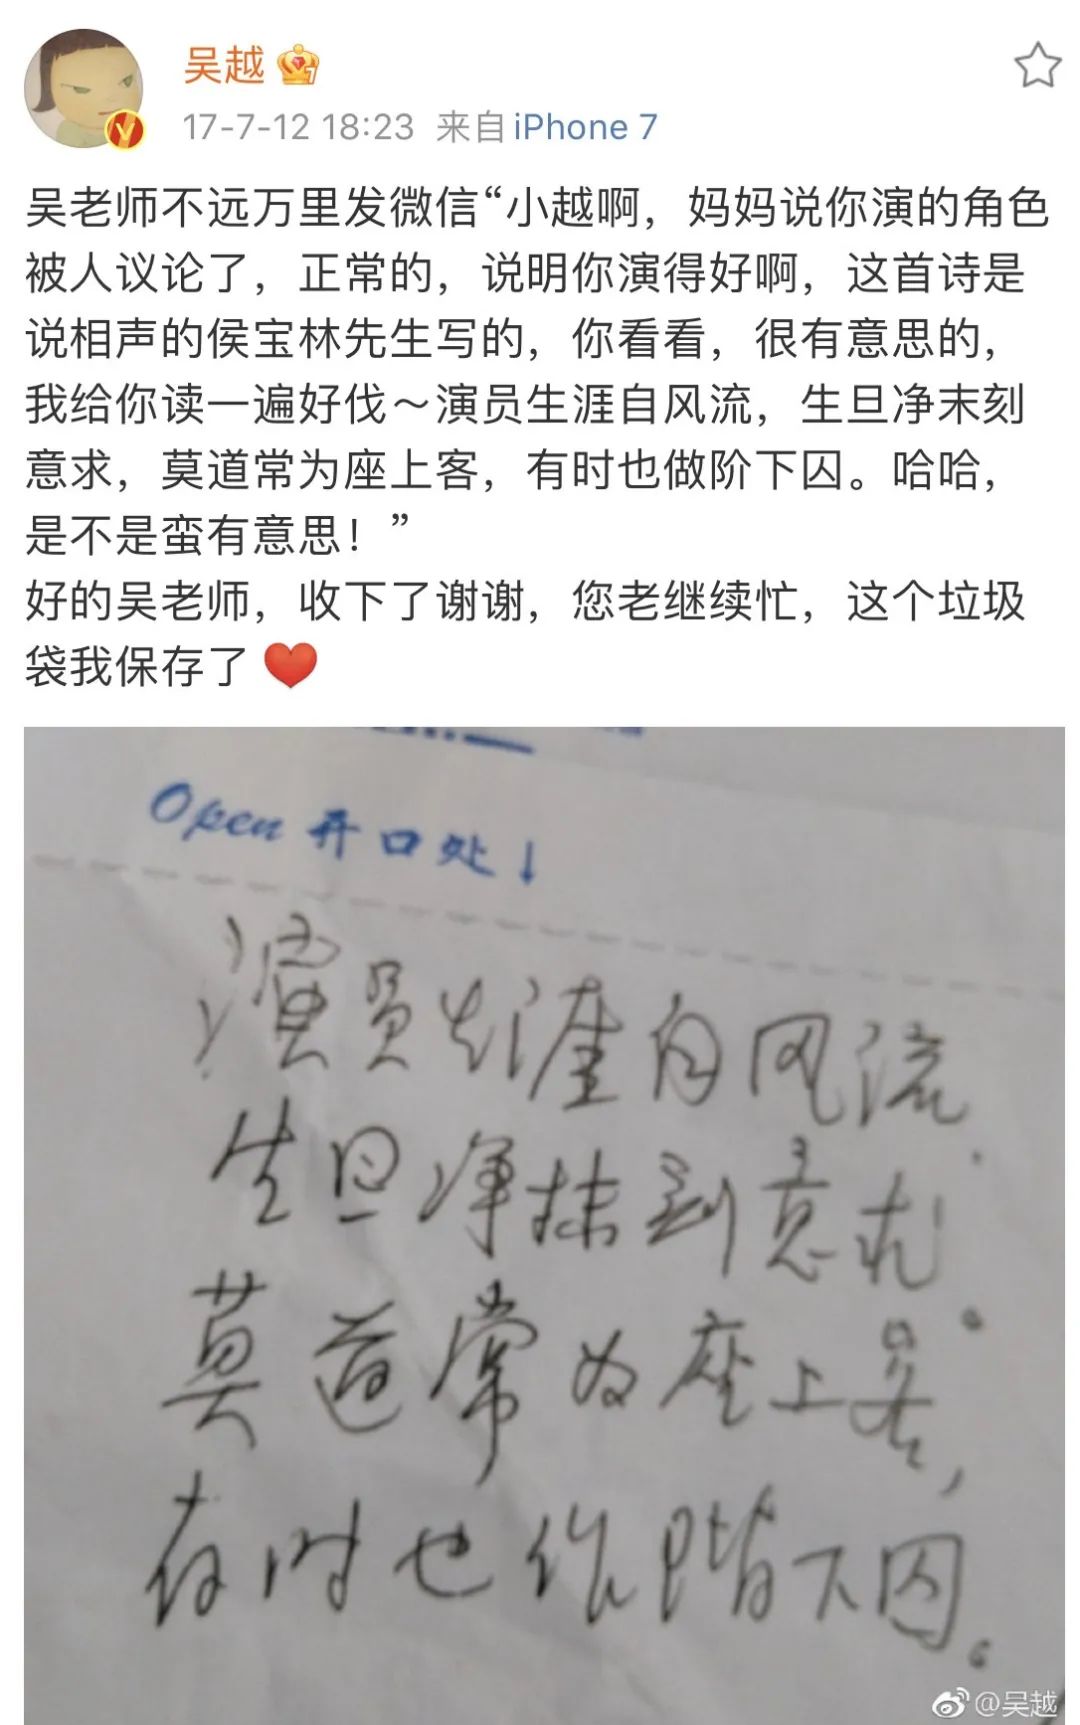 吴越
17-7-12 18:23 来自 iPhone 7
吴老师不远万里发微信“小越啊，妈妈说你演的角色
被人议论了，正常的，说明你演得好啊，这首诗是
说相声的侯宝林先生写的，你看看，很有意思的，
我给你读一遍好伐～演员生涯自风流，生旦净末刻
意求，莫道常为座上客，有时也做阶下囚。哈哈，
是不是蛮有意思！”
好的吴老师，收下了谢谢，您老继续忙，这个垃圾
袋我保存了
Open 开口处↓
演员生涯自风流
生旦净抹刻意求。
莫道常为座上客，
有时也作阶下囚。
@吴越